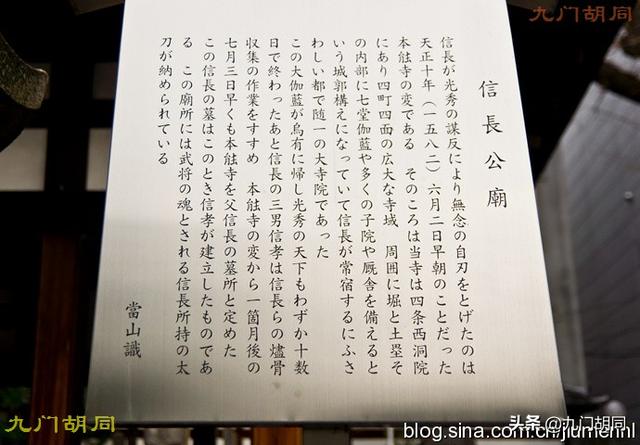 九门胡同
信長公廟
信長が光秀の謀反により無念の自刃をとげたのは
天正十年（一五八二）六月二日早朝のことだった
本能寺の変である　そのころは当寺は四条西洞院
にあり四町四面の広大な寺域　周囲に堀と土塁そ
の内部に七堂伽藍や多くの子院や厩舎を備えると
いう城郭構えになっていて信長が常宿するにふさ
わしい都で随一の大寺院であった
この大伽藍が烏有に帰し光秀の天下もわずか十数
日で終わったあと信長の三男信孝は信長らの燼骨
収集の作業をすすめ　本能寺の変から一箇月後の
七月三日早くも本能寺を父信長の墓所と定めた
この信長の墓はこのとき信孝が建立したものであ
る　この廟所には武将の魂とされる信長所持の太
刀が納められている
當山識
九门胡同
头条 @九门胡同
blog.sina.com.cn/jiumenhl